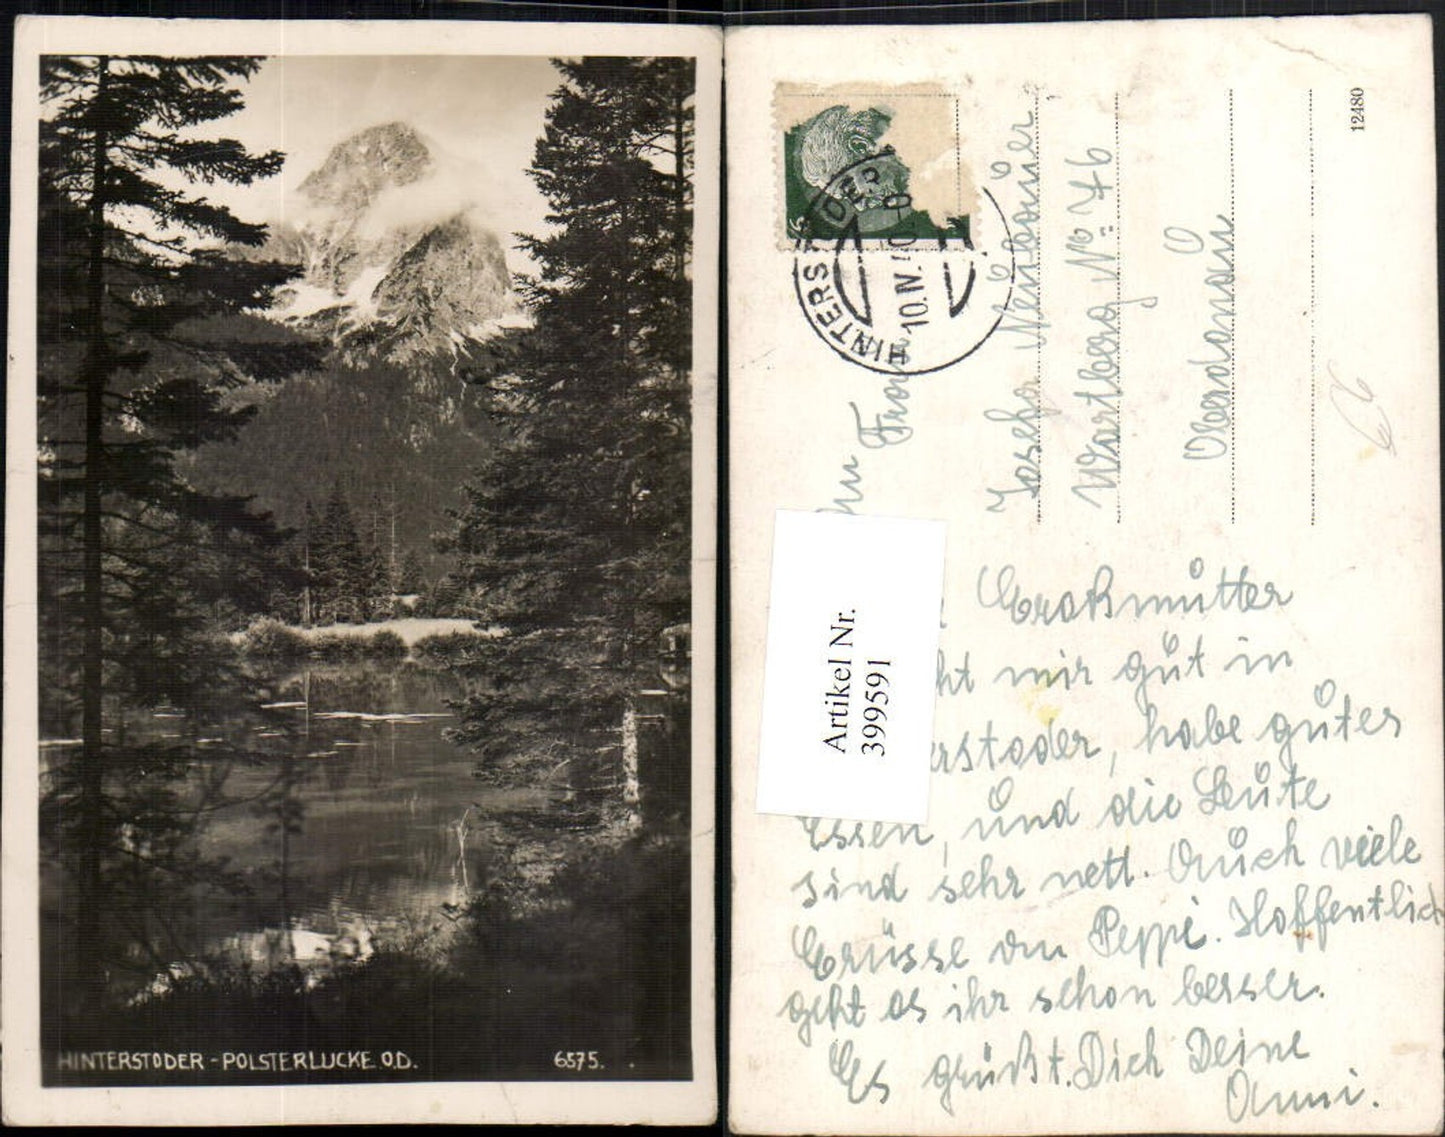 HINTERSTODER - POLSTERLUCKE O.D.
6575.
12480
HINTERSTODER
10.IV.40
An
Frau
Josefa Neubauer
Wartberg № 76
Oberdonau
Artikel Nr.
399591
Großmutter
ht mir gut in
erstoder, habe gutes
Essen, und die Leute
sind sehr nett. Auch viele
Grüsse an Peppi. Hoffentlich
geht es ihr schon besser.
Es grüßt Dich Deine
Anni.